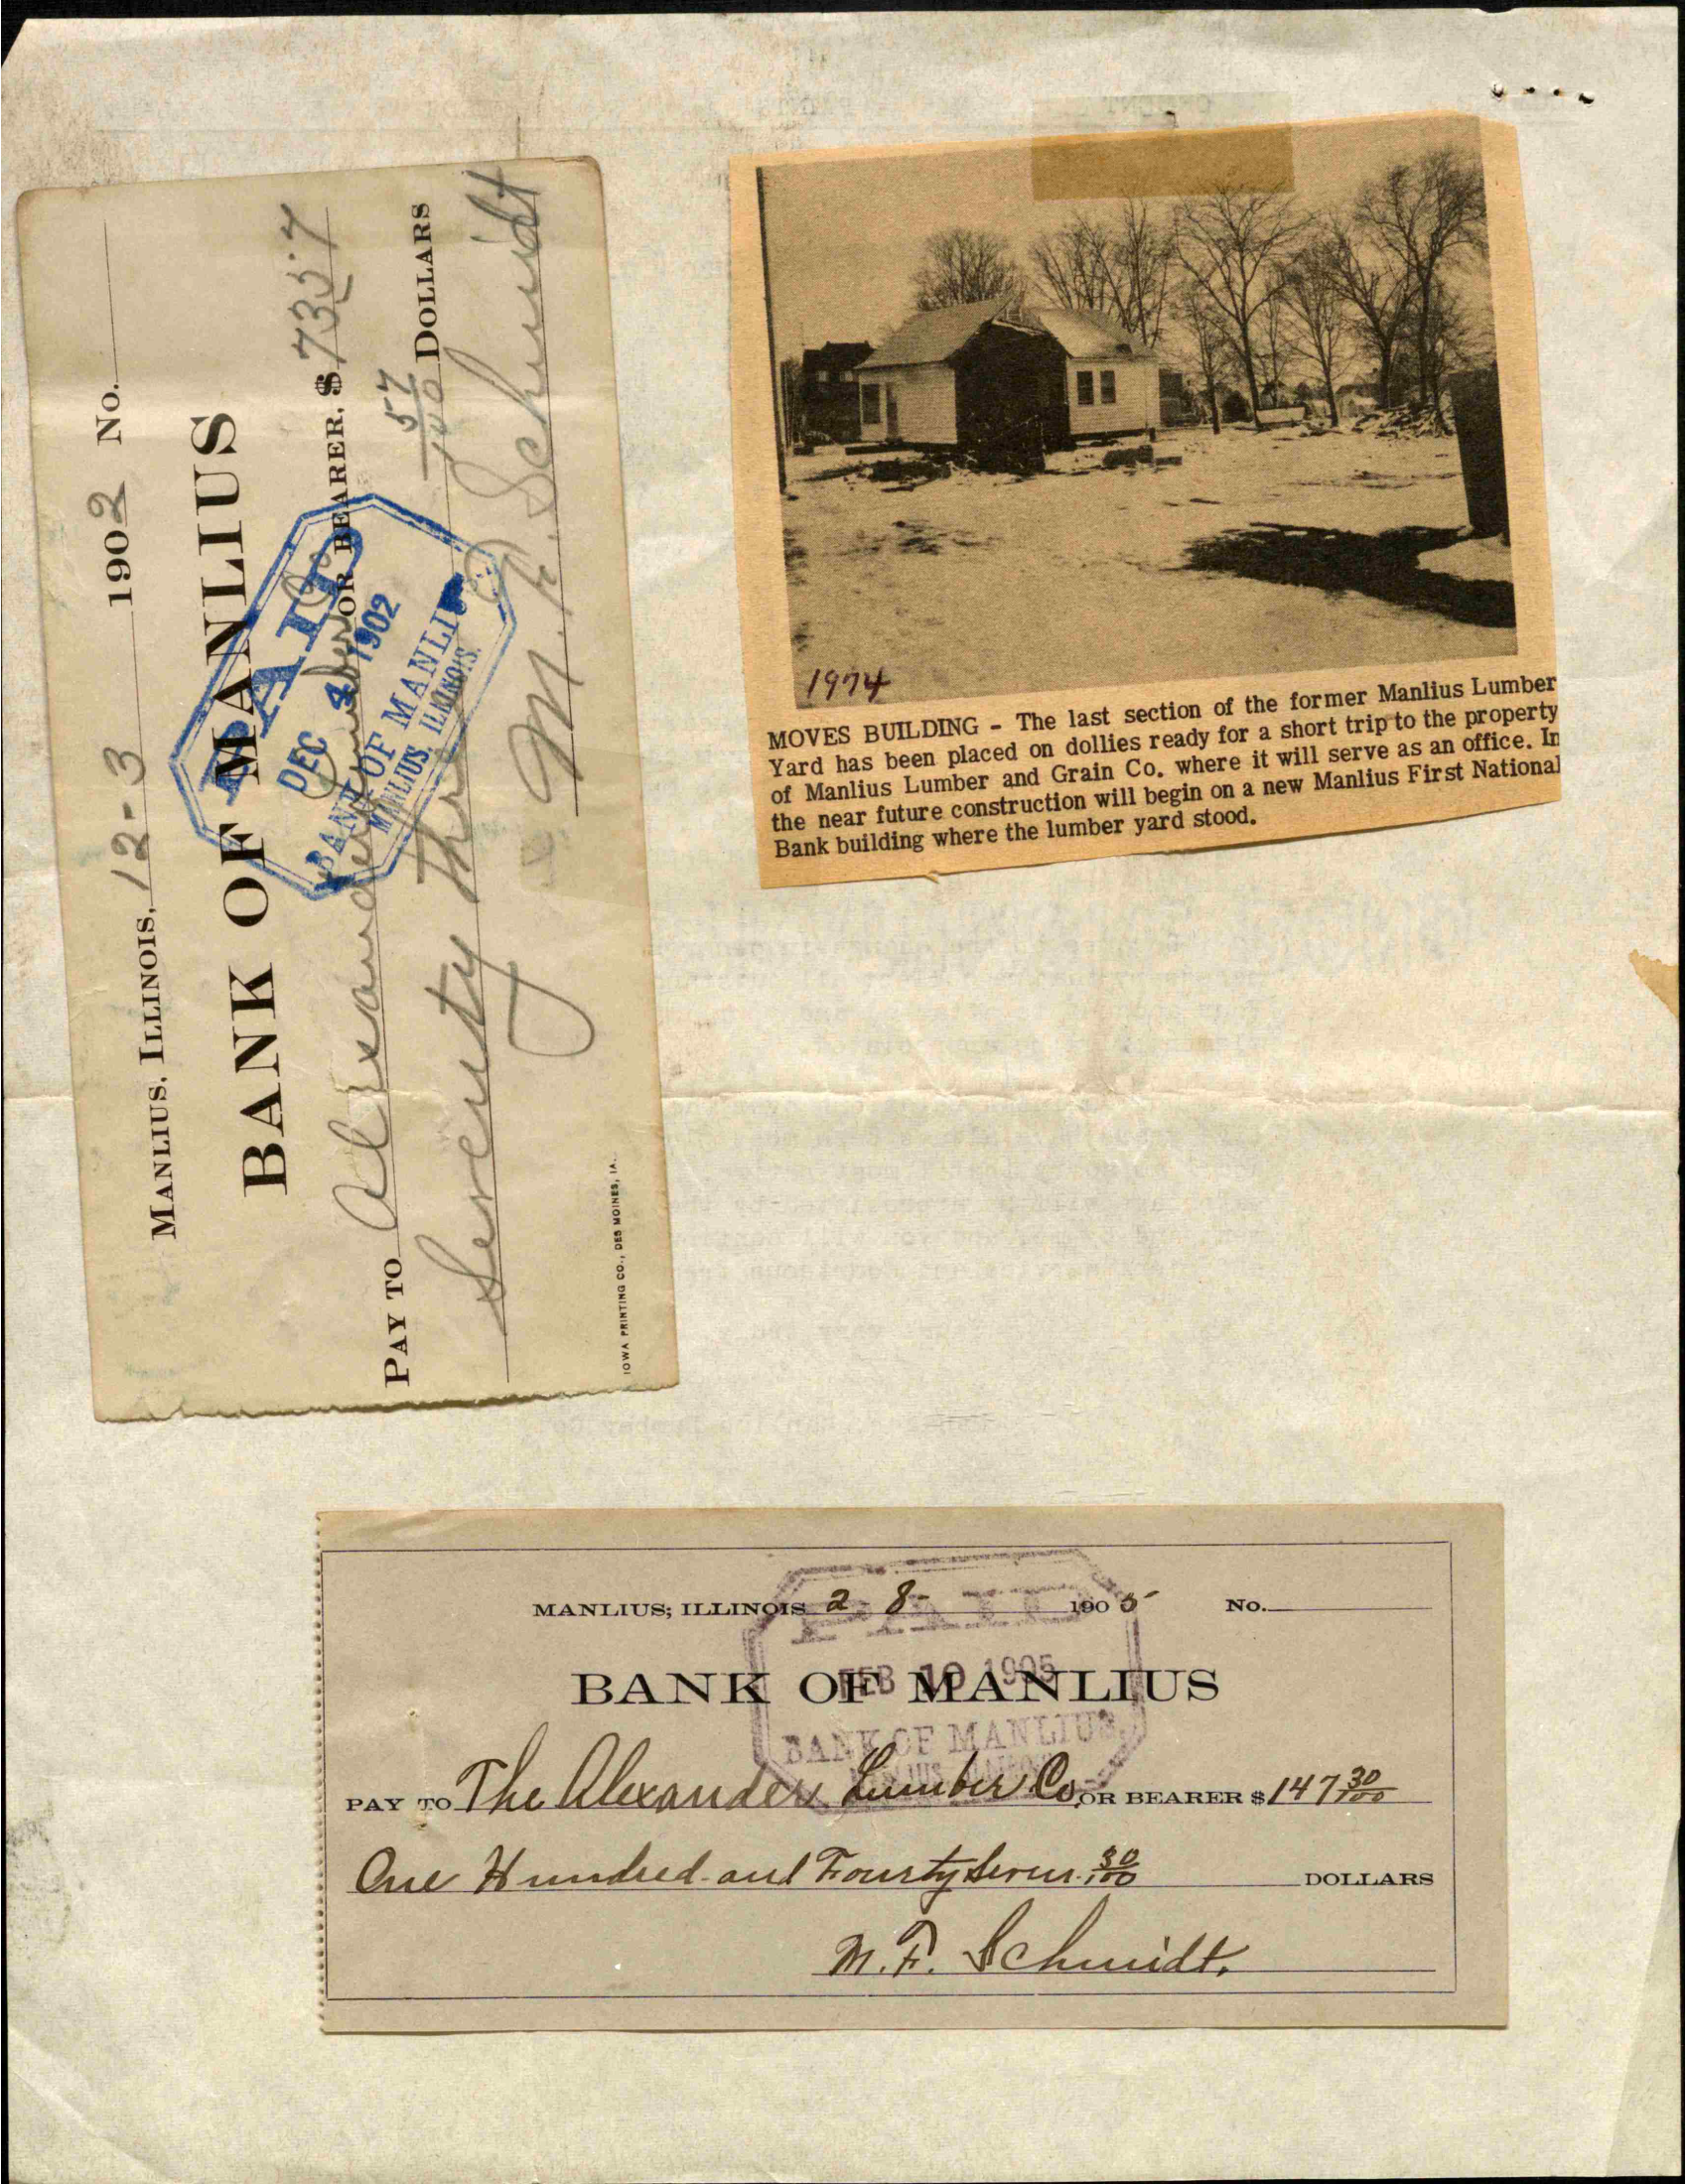 MANLIUS, ILLINOIS, 12-3 1902 No.
BANK OF MANLIUS
PAY TO Alexander Lumber Co OR BEARER, $ 73 57
Seventy Three 57/100 DOLLARS
M. F. Schmidt
IOWA PRINTING CO., DES MOINES, IA.
PAID
DEC 4 1902
BANK OF MANLIUS
MANLIUS, ILLINOIS.
1974
MOVES BUILDING - The last section of the former Manlius Lumber
Yard has been placed on dollies ready for a short trip to the property
of Manlius Lumber and Grain Co. where it will serve as an office. In
the near future construction will begin on a new Manlius First National
Bank building where the lumber yard stood.
MANLIUS, ILLINOIS 2-8- 1905 No.
BANK OF MANLIUS
PAY TO The Alexander Lumber Co. OR BEARER $ 147 30/100
One Hundred and Fourty Seven 30/100 DOLLARS
M. F. Schmidt.
PAID
FEB 10 1905
BANK OF MANLIUS,